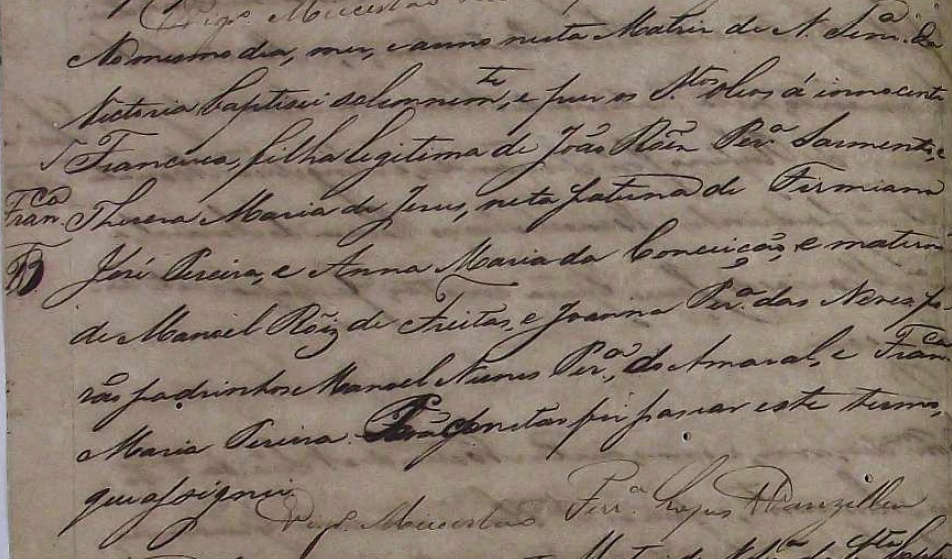 Vigº. Mieceslao
No mesmo dia, mez, e anno nesta Matriz de N. Senrª. da
Victoria baptisei solemnemte, e puz os Stos oleos á innocente
Francisca, filha legitima de João Roiz Perª. Sarmento, e
Francª Thereza Maria de Jesus, neta paterna de Firmiano
José Pereira, e Anna Maria da Conceição, e materna
de Manoel Roiz de Freitas, e Joanna Perª. das Neves, fo
rão padrinhos Manoel Nunes Perª. do Amaral, e Francª
Maria Pereira. Para constar fiz passar este termo,
que assignei.
Vigº. Mieceslao Ferrª. Lopes Wanzeller